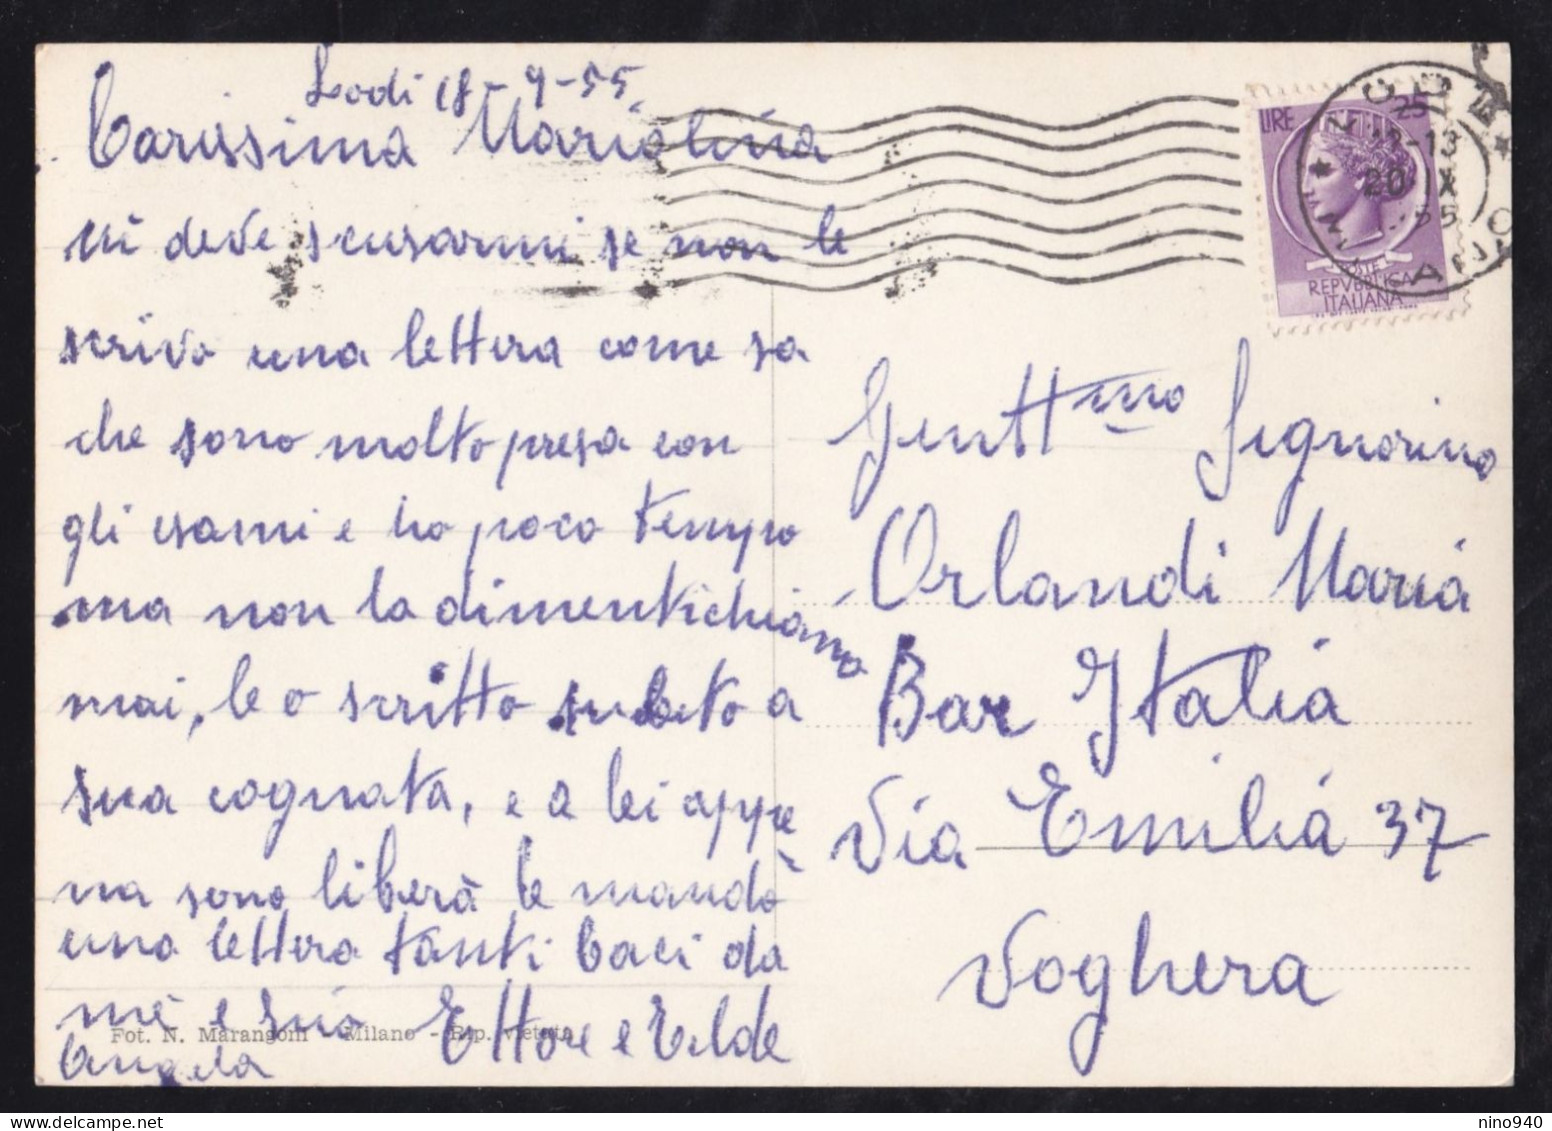 Lodi 18-9-55
Carissima Mariolina
mi deve scusarmi se non le
scrivo una lettera come sa
che sono molto presa con
gli esami e ho poco tempo
ma non la dimentichiamo
mai, le o scritto subito a
sua cognata, e a lei appe
na sono liberà le mandò
una lettera tanti baci da
me e zio Ettore e Elde
Angela
Fot. N. Marangoni - Milano - Rip. vietata
LIRE 25
REPVBBLICA
ITALIANA
12-13
20 IX
55
MILANO
Gentt.mo Signorino
Orlandi Maria
Bar Italia
Via Emilia 37
Voghera
nino940